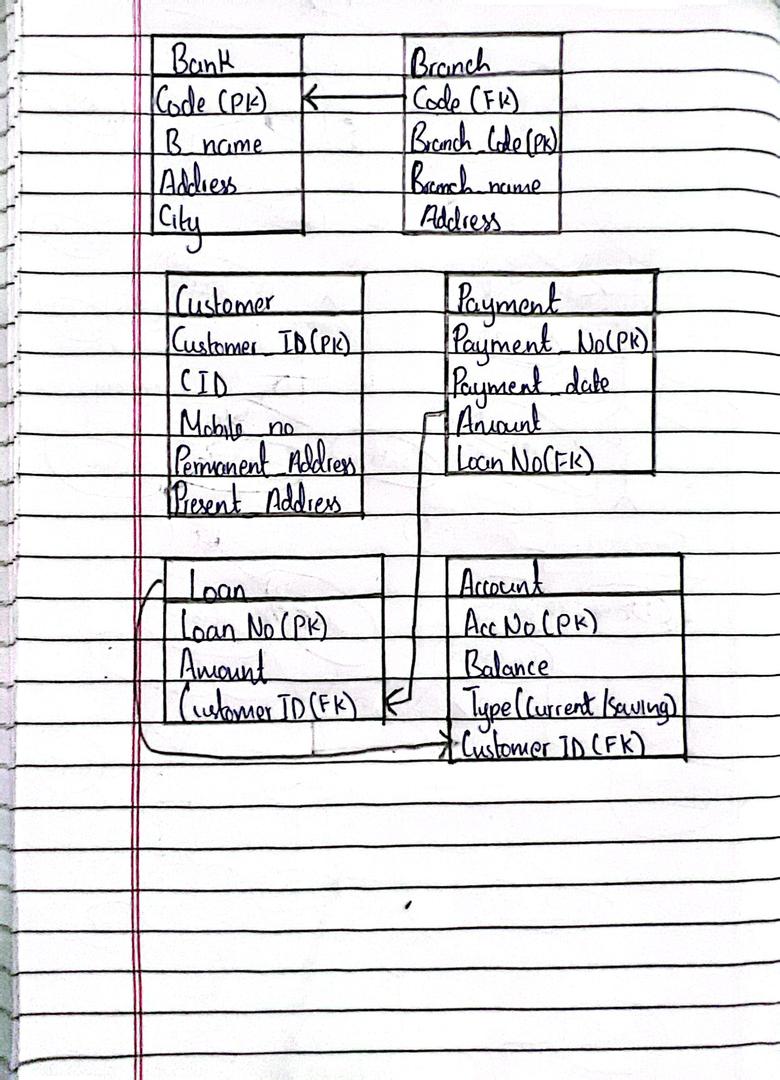 Bank
Code (PK)
B_name
Address
City
Branch
Code (FK)
Branch_Code(PK)
Branch_name
Address
Customer
Customer_ID(PK)
CID
Mobile_no
Permanent_Address
Present_Address
Payment
Payment_No(PK)
Payment_date
Amount
Loan No(FK)
Loan
Loan No(PK)
Amount
Customer ID(FK)
Account
Acc No(PK)
Balance
Type(Current/saving)
Customer ID(FK)